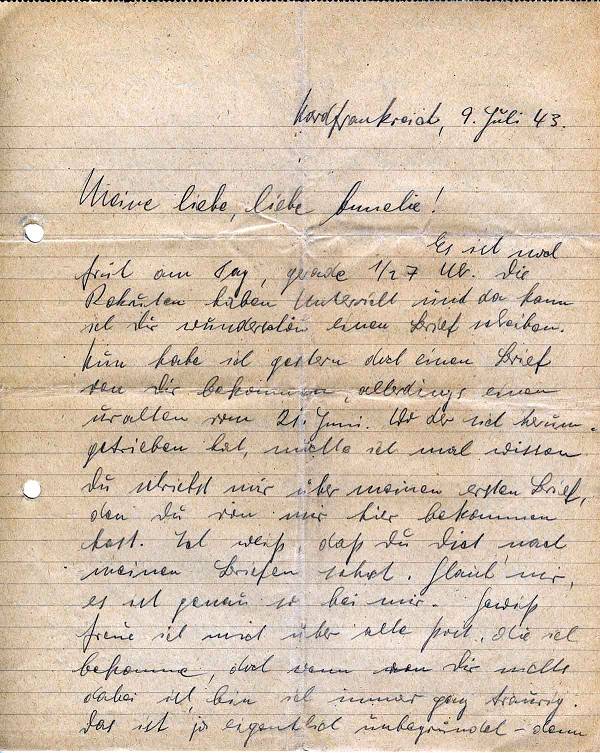 Nordfrankreich, 9. Juli 43.
Meine liebe, liebe Annelie!
Es ist noch
früh am Tag, gerade 1/2 7 Uhr. Die
Rekruten haben Unterricht und da kann
ich Dir wunderschön einen Brief schreiben.
Nun habe ich gestern doch einen Brief
von Dir bekommen, allerdings einen
uralten vom 21. Juni. Wo der sich herum-
getrieben hat, möchte ich mal wissen.
Du schriebst mir über meinen ersten Brief,
den du von mir hier bekommen
hast. Ich weiß, daß Du Dich nach
meinen Briefen sehnst. Glaub' mir,
es ist genau so bei mir. Gewiß
freue ich mich über alle Post, die ich
bekomme, doch wenn von Dir nichts
dabei ist, bin ich immer ganz traurig.
Das ist ja eigentlich unbegründet - denn